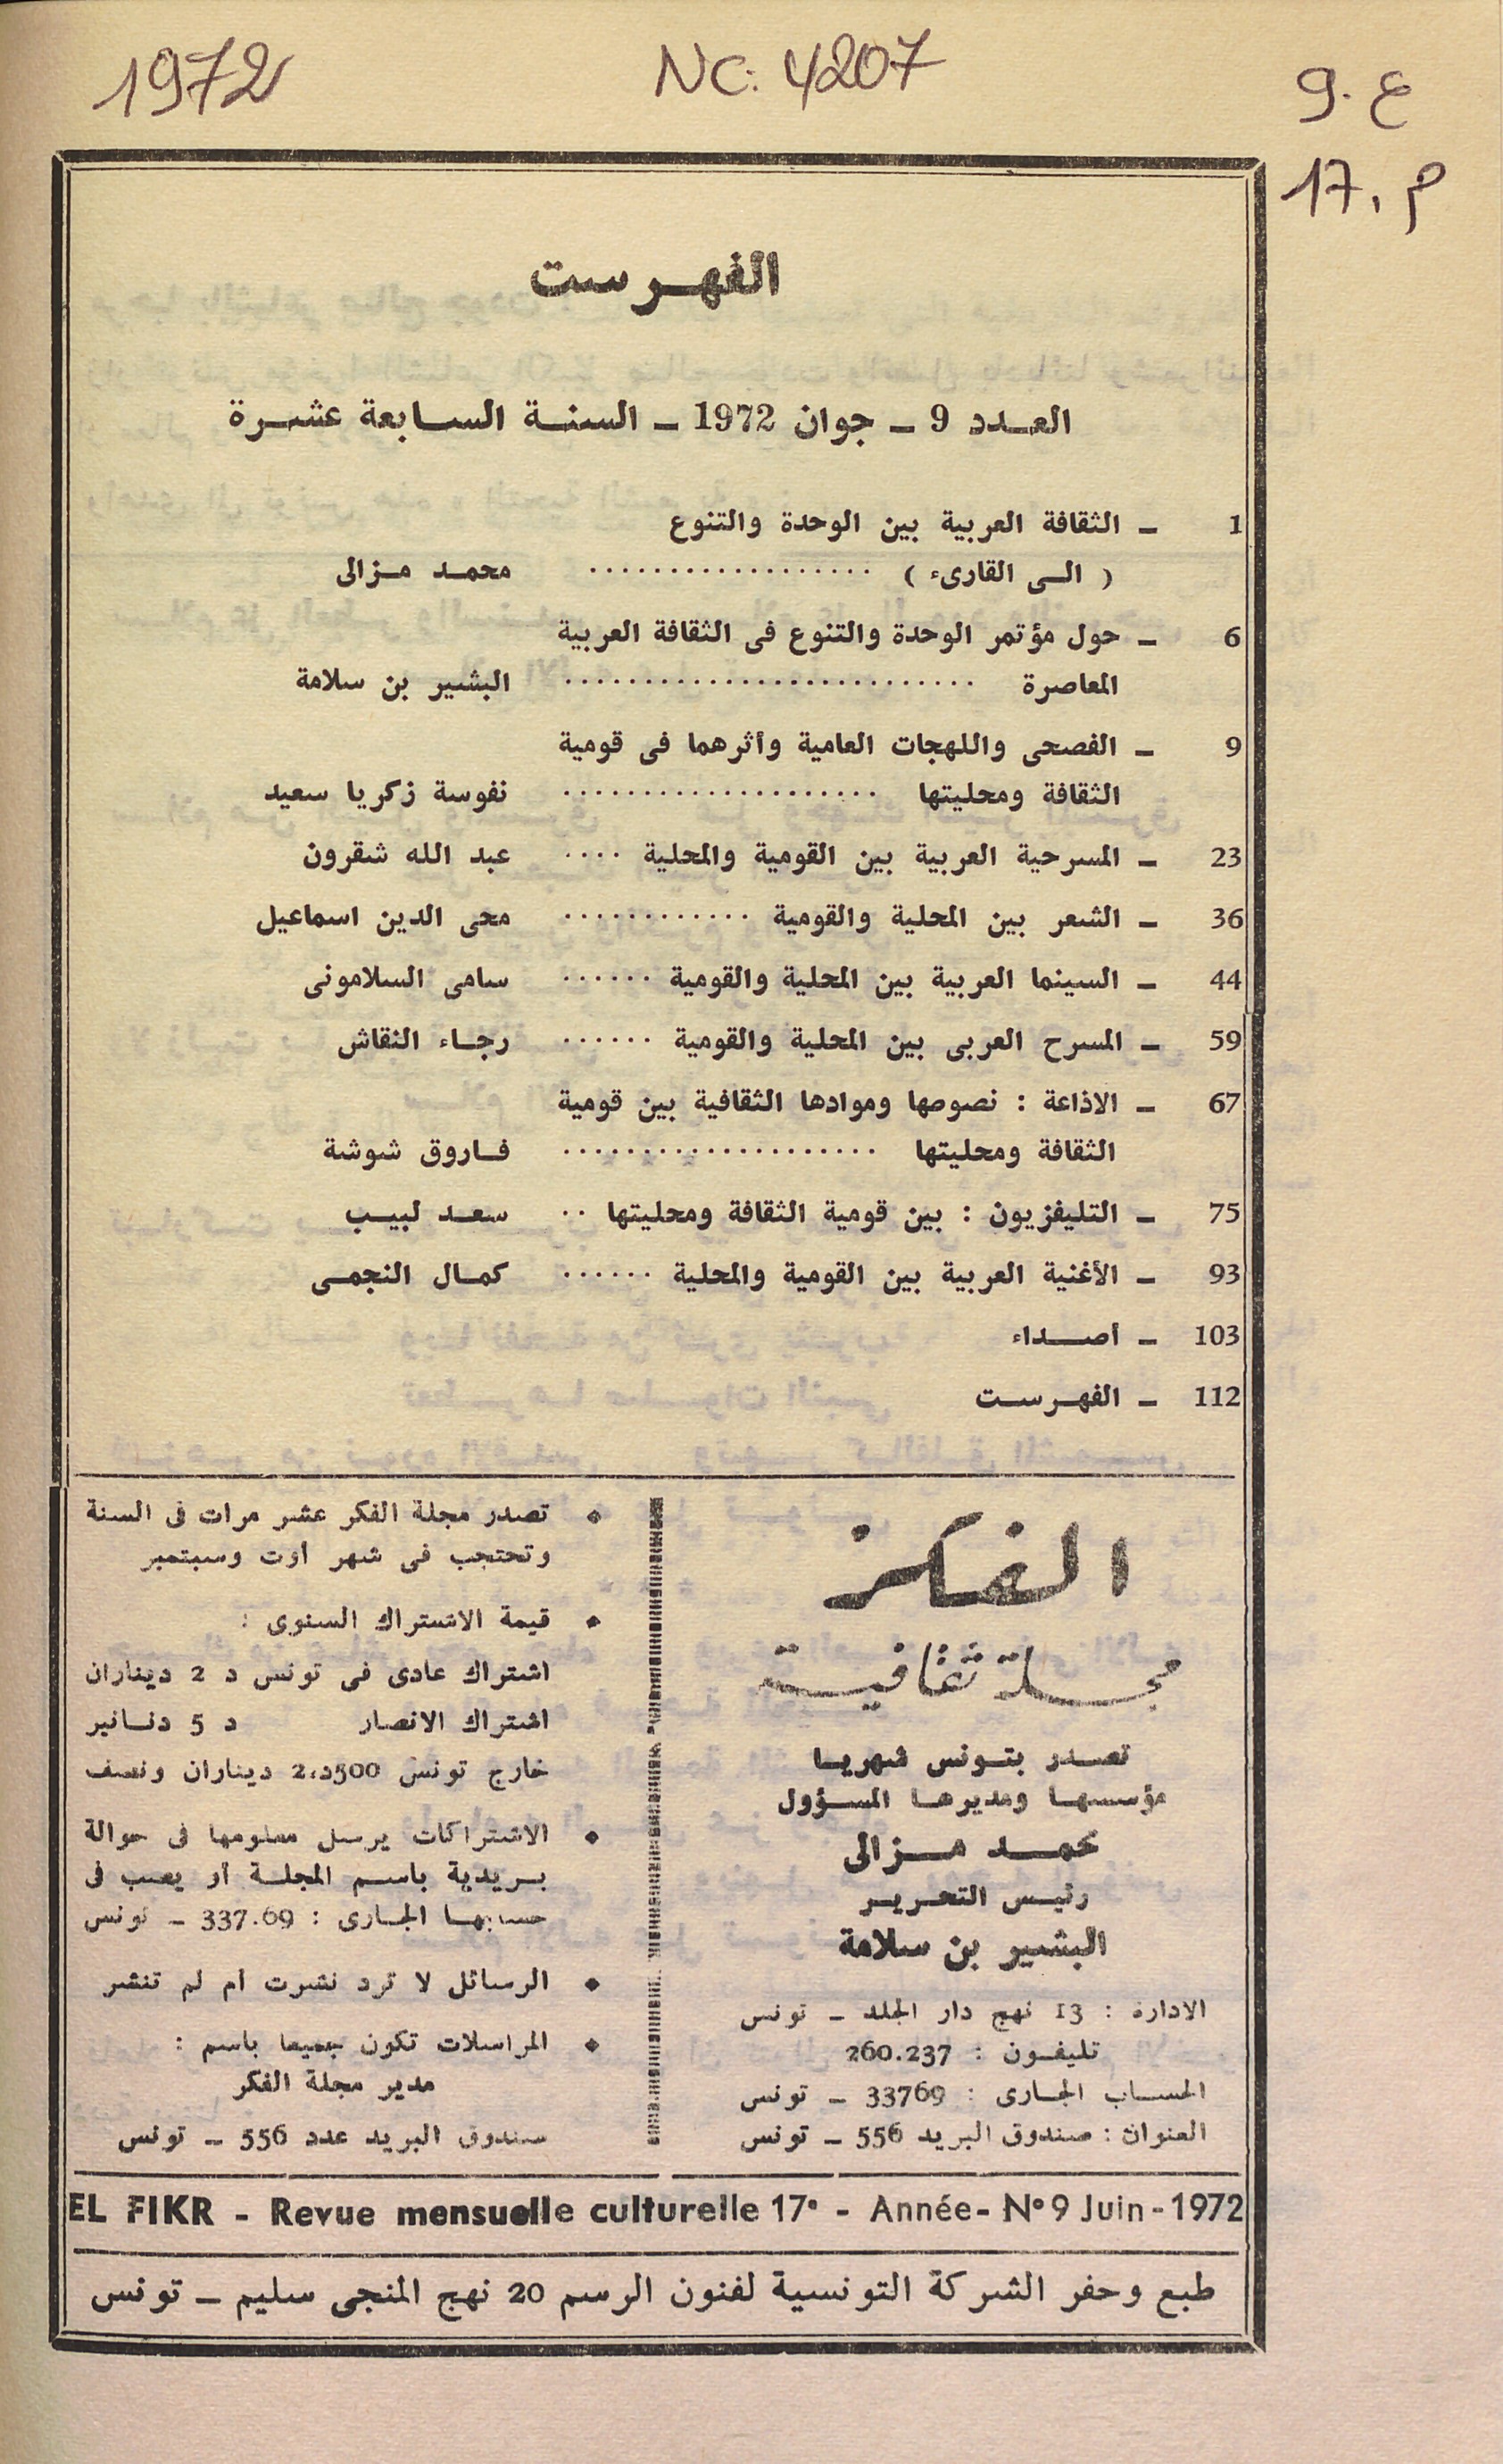 1972
NC: 4207
ع .9
م .17
الفهرست
العدد 9 ـ جوان 1972 ـ السنة السابعة عشرة
1 ـ الثقافة العربية بين الوحدة والتنوع
( الى القارىء ) .................. محمد مزالى
6 ـ حول مؤتمر الوحدة والتنوع فى الثقافة العربية
المعاصرة .......................... البشير بن سلامة
9 ـ الفصحى واللهجات العامية وأثرهما فى قومية
الثقافة ومحليتها .................... نفوسة زكريا سعيد
23 ـ المسرحية العربية بين القومية والمحلية .... عبد الله شقرون
36 ـ الشعر بين المحلية والقومية ............ محى الدين اسماعيل
44 ـ السينما العربية بين المحلية والقومية ...... سامى السلامونى
59 ـ المسرح العربى بين المحلية والقومية ...... رجاء النقاش
67 ـ الاذاعة : نصوصها وموادها الثقافية بين قومية
الثقافة ومحليتها .................... فاروق شوشة
75 ـ التليفزيون : بين قومية الثقافة ومحليتها .. سعد لبيب
93 ـ الأغنية العربية بين القومية والمحلية ...... كمال النجمى
103 ـ أصداء
112 ـ الفهرست
الفكر
مجلة ثقافية
تصدر بتونس شهريا
مؤسسها ومديرها المسؤول
محمد مزالى
رئيس التحرير
البشير بن سلامة
الادارة : 13 نهج دار الجلد ـ تونس
تليفون : 260.237
الحساب الجارى : 33769 ـ تونس
العنوان : صندوق البريد 556 ـ تونس
• تصدر مجلة الفكر عشر مرات فى السنة
وتحتجب فى شهر أوت وسبتمبر
• قيمة الاشتراك السنوى :
اشتراك عادى فى تونس د 2 ديناران
اشتراك الانصار د 5 دنانير
خارج تونس 500د،2 ديناران ونصف
• الاشتراكات يرسل معلومها فى حوالة
بريدية باسم المجلة أو يصب فى
حسابها الجارى : 337.69 ـ تونس
• الرسائل لا ترد نشرت أم لم تنشر
• المراسلات تكون جميعا باسم :
مدير مجلة الفكر
صندوق البريد عدد 556 ـ تونس
EL FIKR - Revue mensuelle culturelle 17e - Année - N° 9 Juin - 1972
طبع وحفر الشركة التونسية لفنون الرسم 20 نهج المنجى سليم ـ تونس